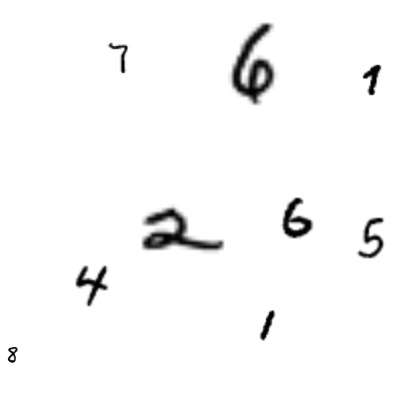 7 6 1
2 6 5
4 1
8